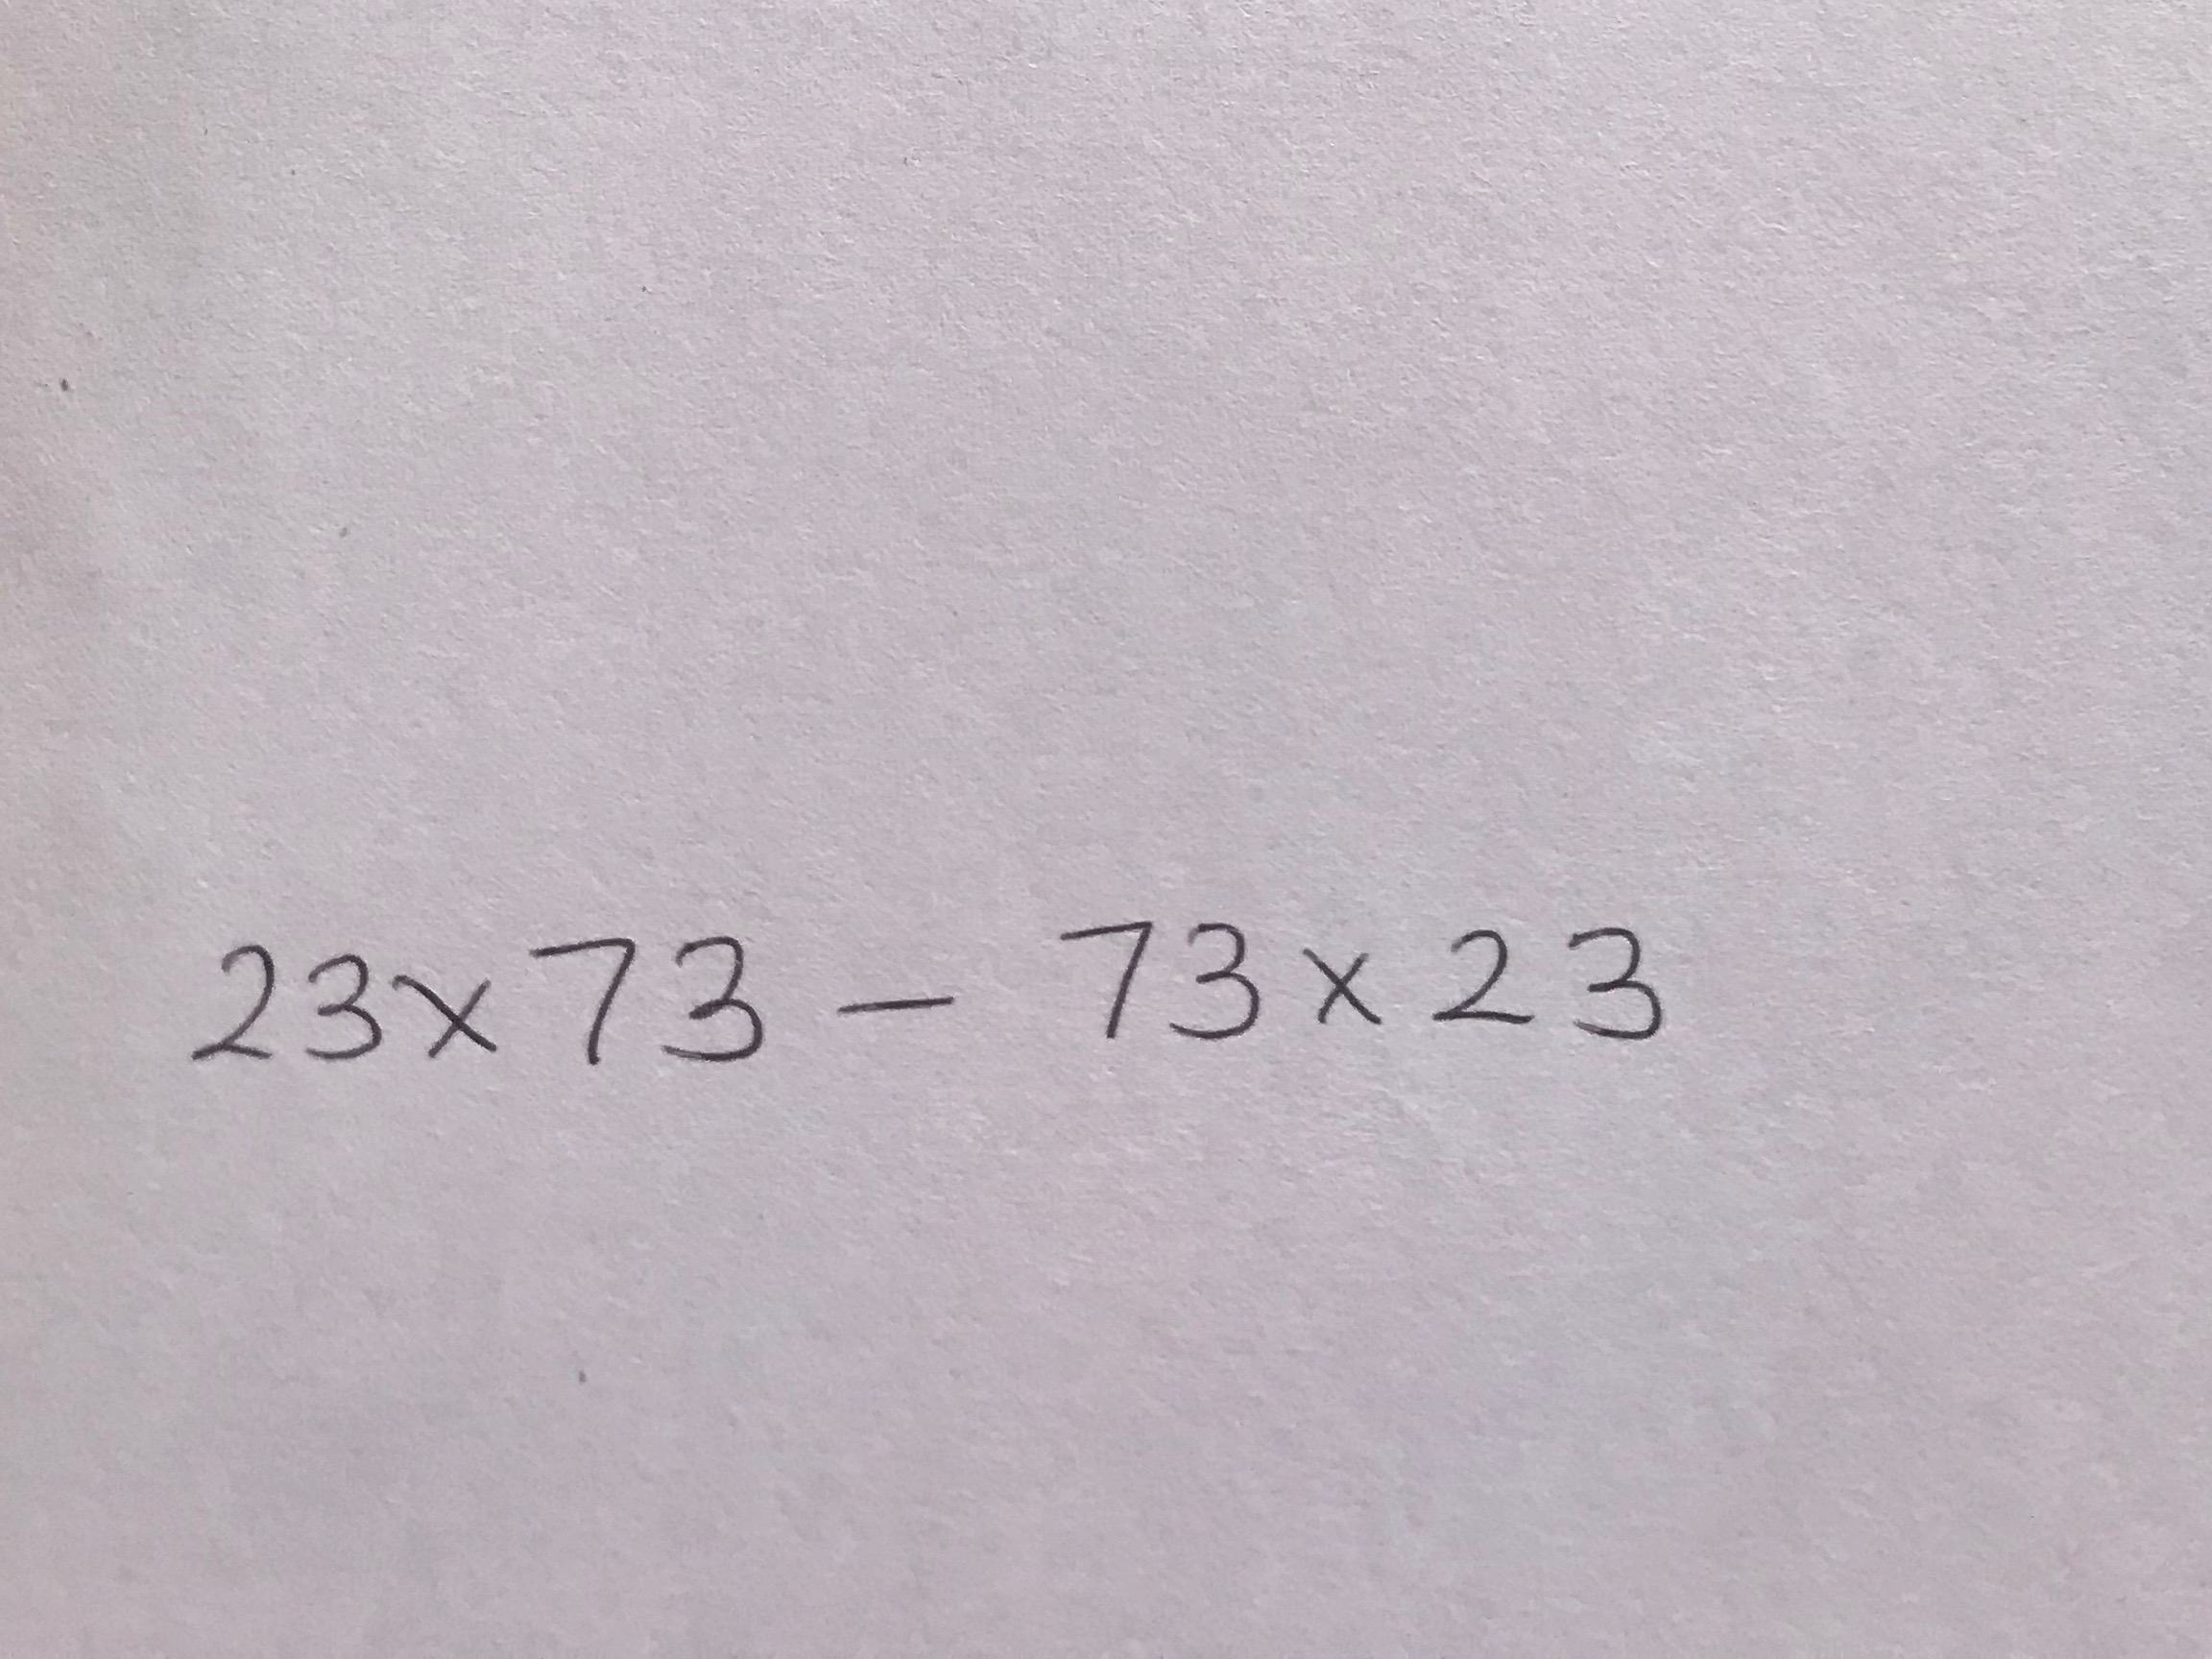 23×73 – 73×23